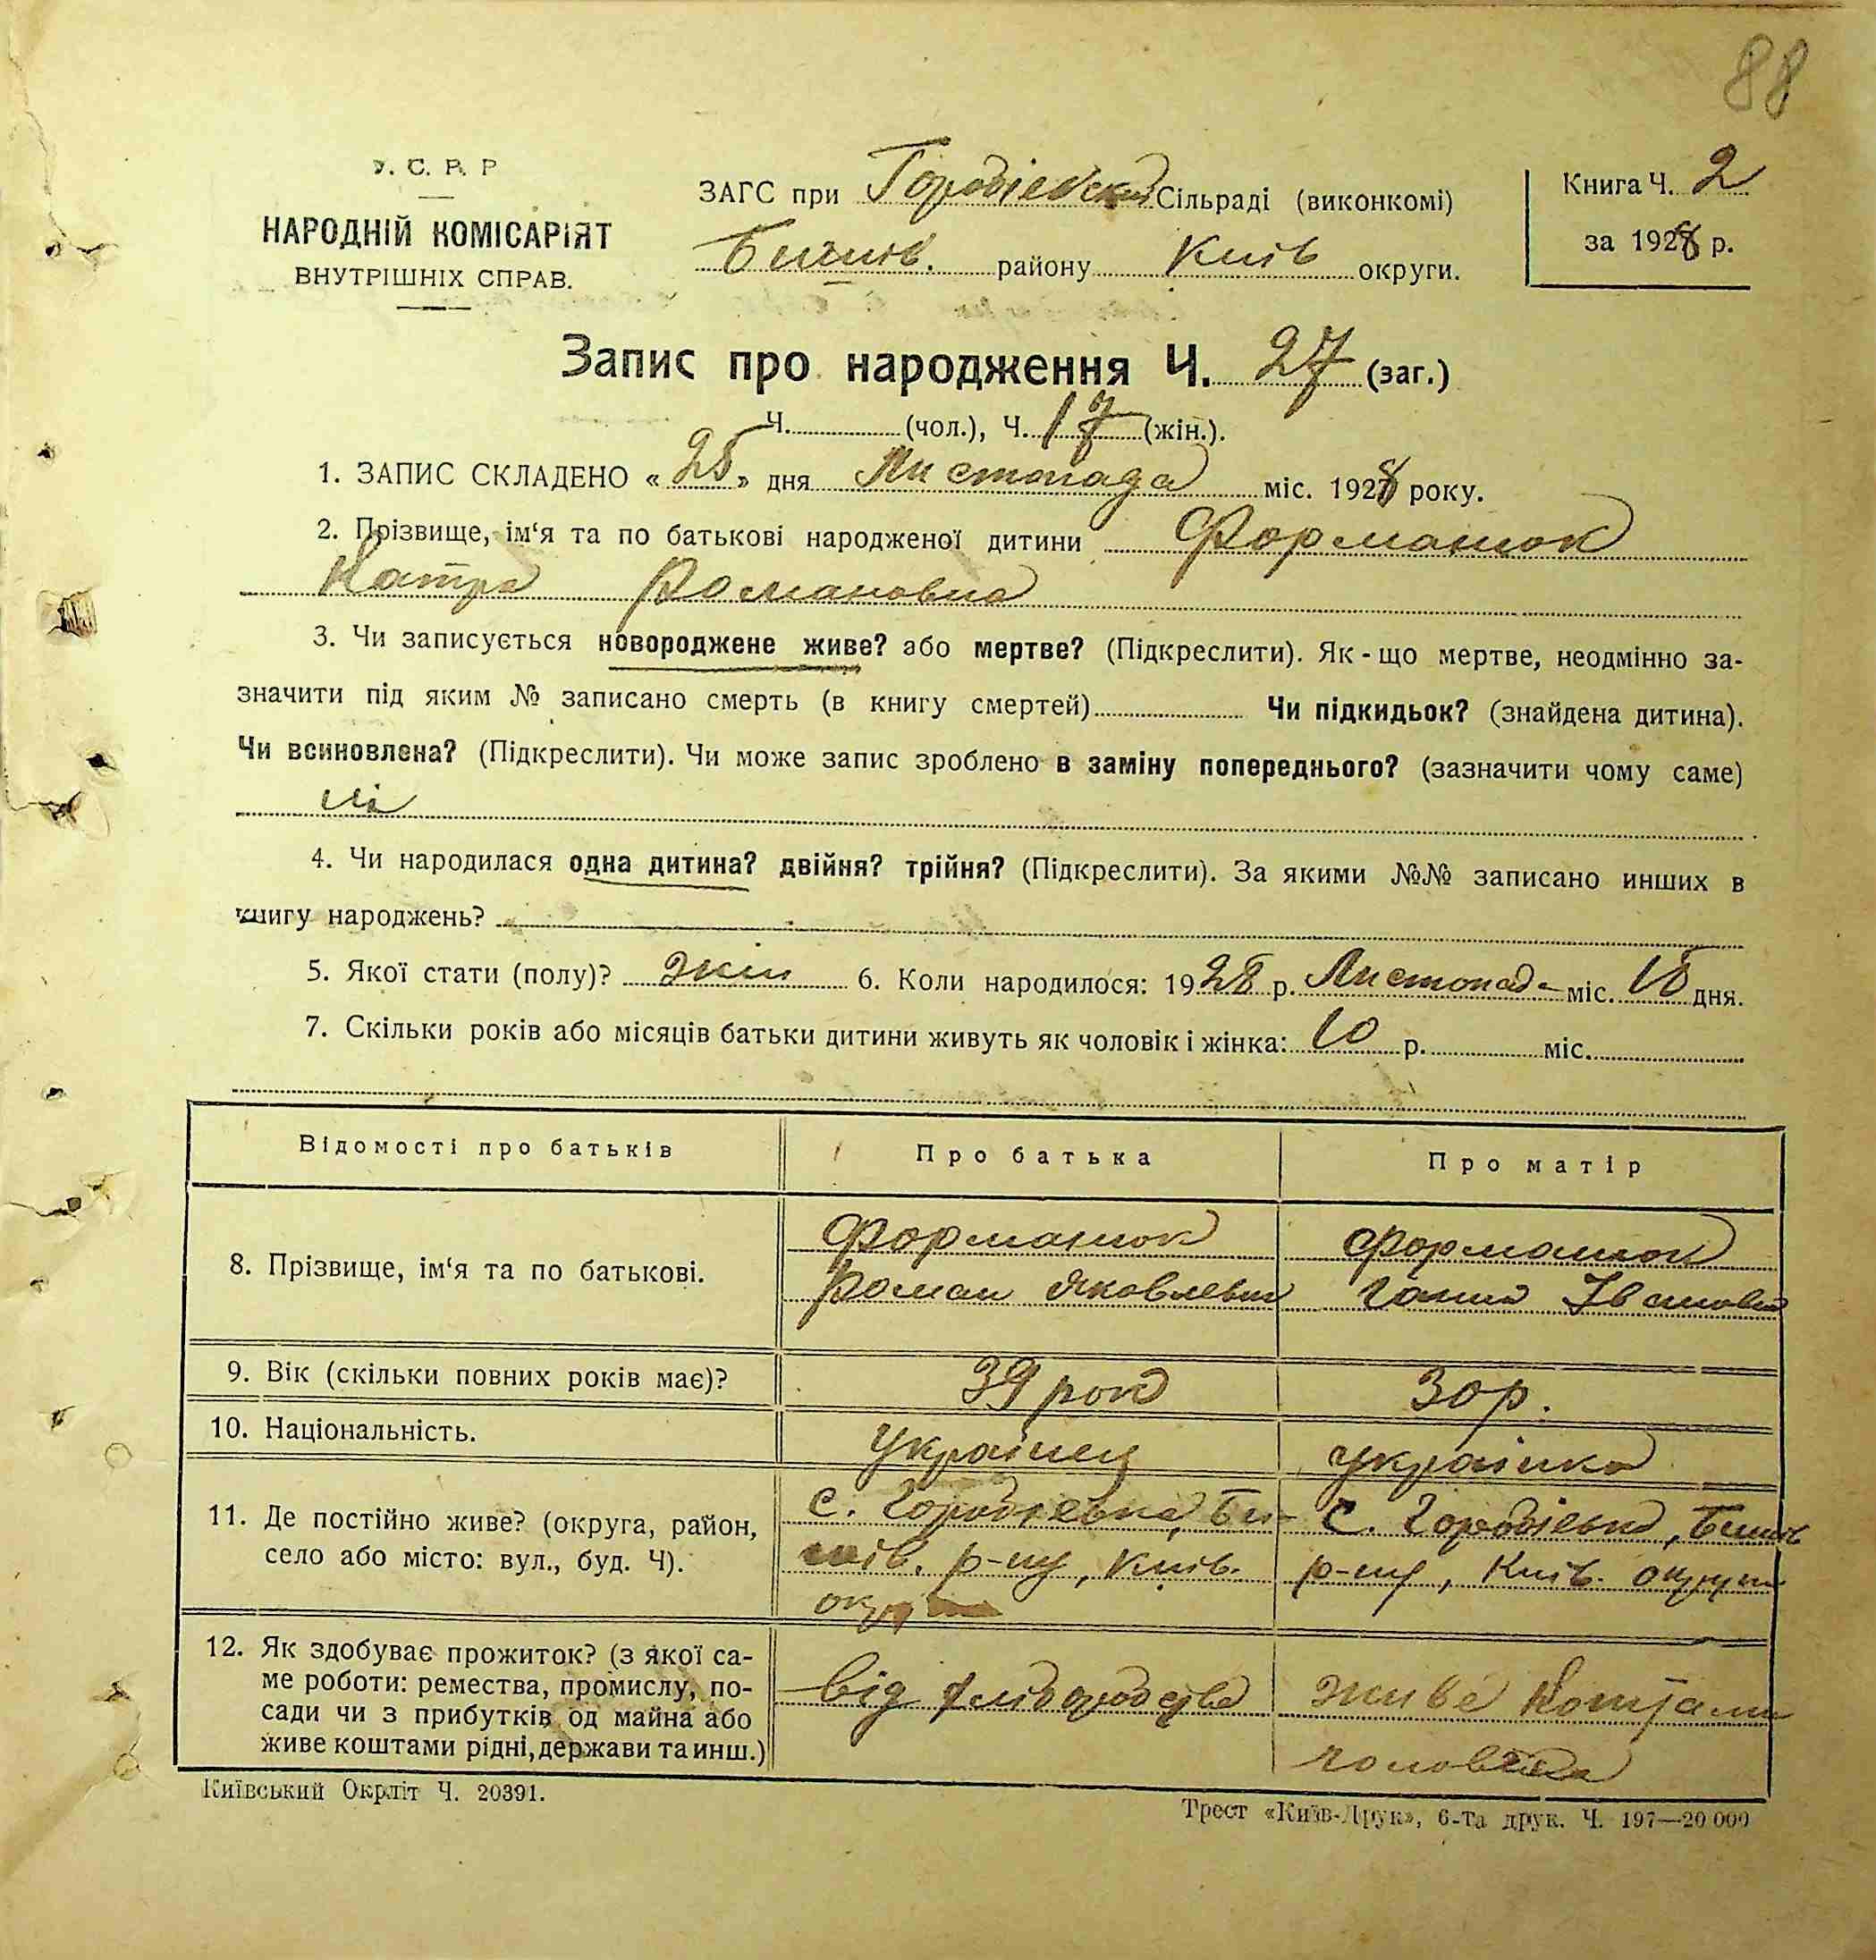 88
У. С. Р. Р
НАРОДНІЙ КОМІСАРІЯТ
ВНУТРІШНІХ СПРАВ.
ЗАГС при Городіевскій Сільраді (виконкомі)
Бишів. району Київ округи.
Книга Ч. 2
за 1928 р.
Запис про народження Ч. 27 (заг.)
Ч. (чол.), Ч. 17 (жін.).
1. ЗАПИС СКЛАДЕНО « 25 » дня Листопада міс. 1928 року.
2. Прізвище, ім‘я та по батькові народженої дитини Форманюк
Катря Романовна
3. Чи записується новороджене живе? або мертве? (Підкреслити). Як - що мертве, неодмінно за-
значити під яким № записано смерть (в книгу смертей) Чи підкидьок? (знайдена дитина).
Чи всиновлена? (Підкреслити). Чи може запис зроблено в заміну попереднього? (зазначити чому саме)
ні
4. Чи народилася одна дитина? двійня? трійня? (Підкреслити). За якими №№ записано инших в
книгу народжень?
5. Якої стати (полу)? жін 6. Коли народилося: 1928 р. Листопад міс. дня.
7. Скільки років або місяців батьки дитини живуть як чоловік і жінка: 10 р. міс.
Відомості про батьків Про батька Про матір
8. Прізвище, ім‘я та по батькові.
Форманюк
Роман Яковлевич
Форманюк
Ганна Івановна
9. Вік (скільки повних років має)? 39 рок 30 р.
10. Національність. Українец Українка
11. Де постійно живе? (округа, район,
село або місто: вул., буд. Ч).
с. Городіевка, Би-
шів. р-ну, Київ.
округи
с. Городіевка, Бишів
р-ну, Київ. округи
12. Як здобуває прожиток? (з якої са-
ме роботи: ремества, промислу, по-
сади чи з прибутків од майна або
живе коштами рідні, держави та инш.)
від хліборобства
живе коштами
чоловіка
Київський Окрліт Ч. 20391.
Трест «Київ-Друк», 6-та друк. Ч. 197—20 000